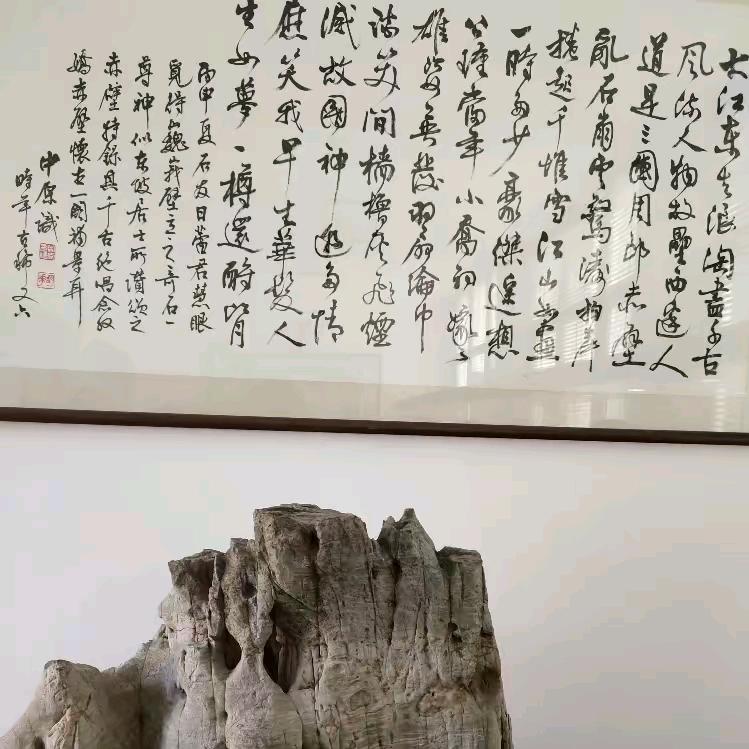 大江东去浪淘盡千古
风流人物故壘西邊人
道是三國周郎赤壁
亂石崩雲驚濤拍岸
捲起千堆雪江山如畫
一時多少豪傑遥想
公瑾當年小喬初嫁了
雄姿英發羽扇綸巾
談笑間檣櫓灰飛煙
滅故國神遊多情
應笑我早生華髮人
生如夢一樽還酹江月
丙申夏石友君慧眼
覓得此巍峩壁立之奇石一
尊神似東坡居士所讚頌之
赤壁特錄其千古絶唱念奴
嬌赤壁懷古一闋耳
中原識
時年古稀又六